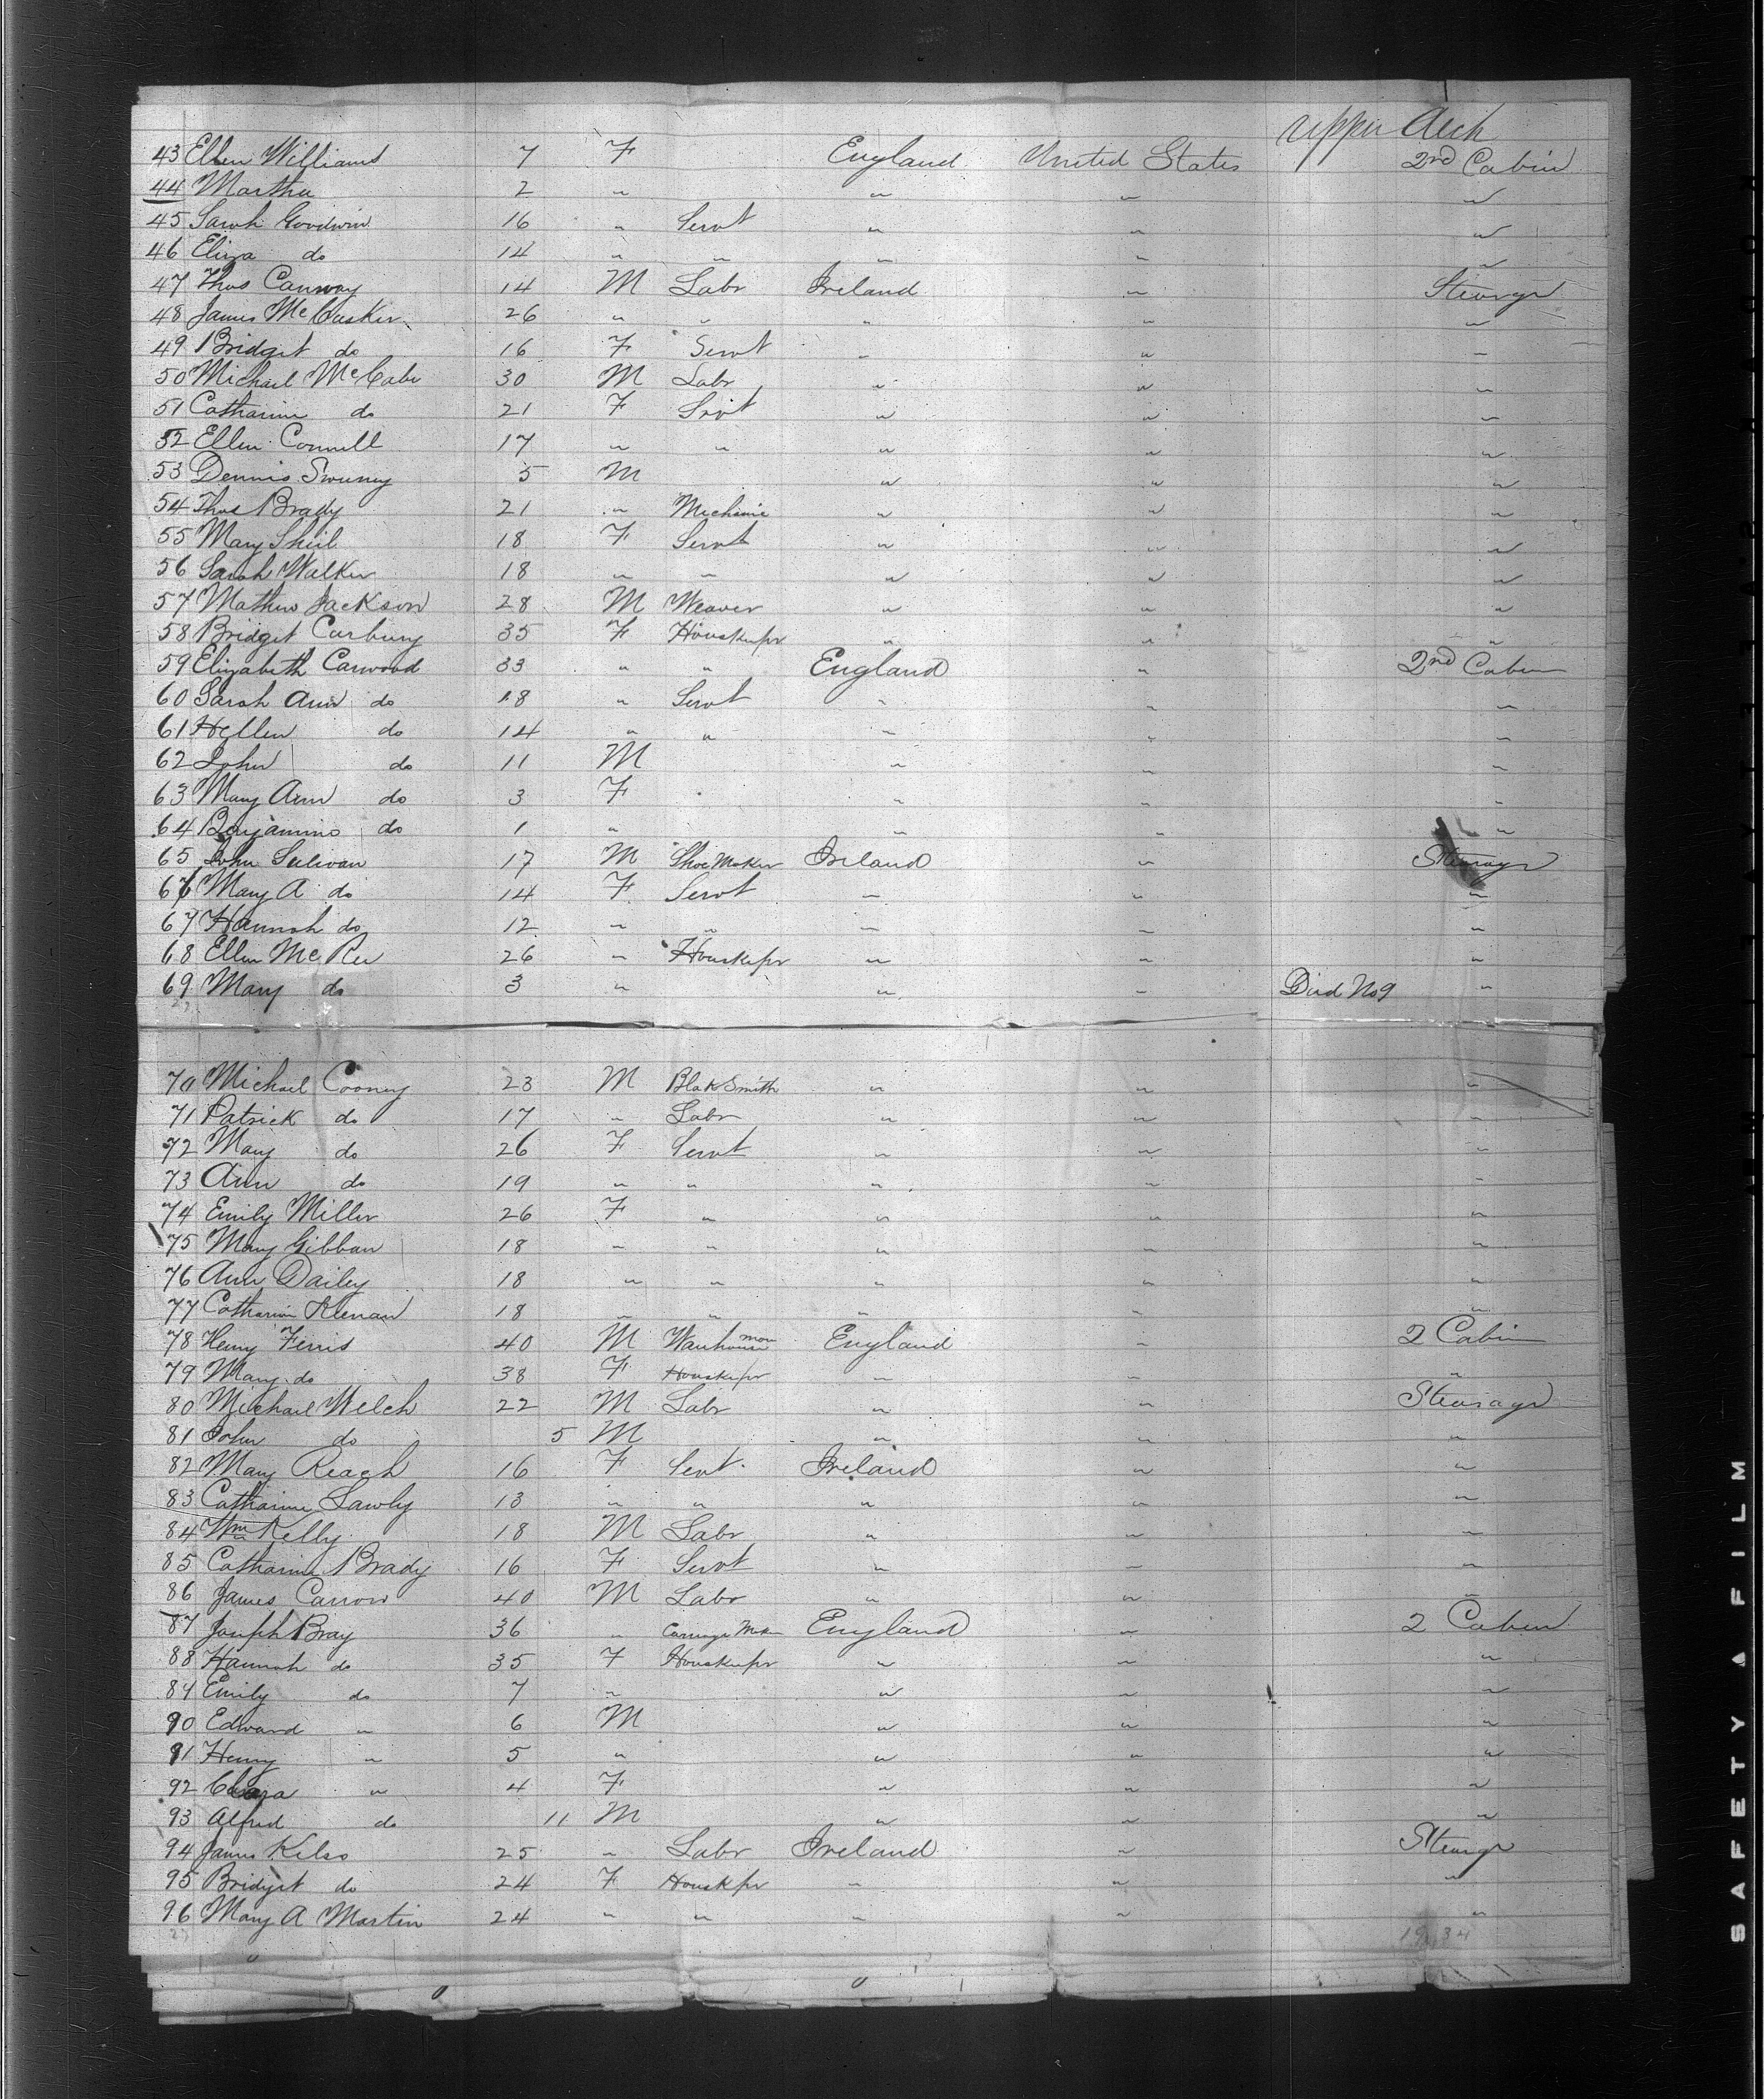 Upper deck
43 Ellen Williams 7 F England United States 2nd Cabin
44 Martha 2 " " " "
45 Sarah Goodwin 16 " Servt " " "
46 Eliza do 14 " " " " "
47 Thos Canway 14 M Labr Ireland " Steerage
48 James McCusker 26 " " " " "
49 Bridget do 16 F Servt " " "
50 Michael McCabe 30 M Labr " " "
51 Catharine do 21 F Srvt " " "
52 Ellen Connell 17 " " " " "
53 Dennis Sweeney 5 M " " "
54 Thos Brady 21 " Mechanic " " "
55 Mary Sheil 18 F Servt " " "
56 Sarah Walker 18 " " " " "
57 Mathew Jackson 28 M Weaver " " "
58 Bridget Carbury 35 F Houskeepr " " "
59 Elizabeth Carwood 33 " " England " 2nd Cabin
60 Sarah Ann do 18 " Servt " " "
61 Hellen do 14 " " " " "
62 John do 11 M " " "
63 Mary Ann do 3 F " " "
64 Benjamino do 1 " " " "
65 John Sulivan 17 M Shoe Maker Ireland " Steerage
66 Mary A do 14 F Servt " " "
67 Hannah do 12 " " " " "
68 Ellen McRee 26 " Houskeepr " " "
69 Mary do 3 " " " Died No 9 "
70 Michael Cooney 23 M BlakSmith " " "
71 Patrick do 17 " Labr " " "
72 Mary do 26 F Servt " " "
73 Ann do 19 " " " " "
74 Emily Miller 26 F " " " "
75 Mary Gibban 18 " " " " "
76 Ann Dailey 18 " " " " "
77 Catharine Keenan 18 " " " " "
78 Henry Ferris 40 M Warehouse man England " 2 Cabin
79 Mary do 38 F Houskeepr " " "
80 Michael Welch 22 M Labr " " Steerage
81 John do 5 M " " "
82 Mary Reach 16 F Servt Ireland " "
83 Catharine Lawly 13 " " " " "
84 Wm Kelly 18 M Labr " " "
85 Catharine Brady 16 F Servt " " "
86 James Carrow 40 M Labr " " "
87 Joseph Bray 36 " Carriage Mkr England " 2 Cabin
88 Hannah do 35 F Houskeepr " " "
89 Emily do 7 " " " "
90 Edward " 6 M " " "
91 Henry " 5 " " " "
92 Clara " 4 F " " "
93 Alfred do 11 M " " "
94 James Kelso 25 " Labr Ireland " Steerage
95 Bridget do 24 F Houskpr " " "
96 Mary A Martin 24 " " " " "
SAFETY FILM